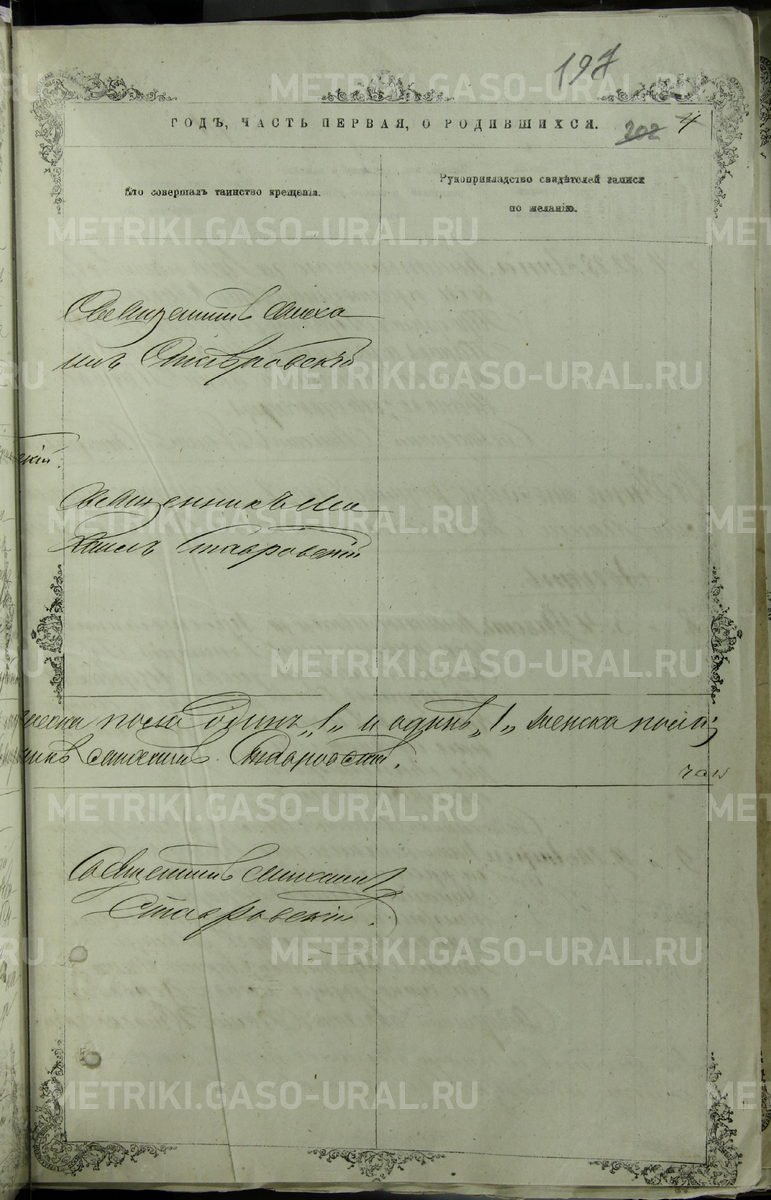 197
ГОДЪ, ЧАСТЬ ПЕРВАЯ, О РОДИВШИХСЯ. 202 4
Кто совершалъ таинство крещенія.
Рукоприкладство свидѣтелей записи
по желанію.
Священникъ Миха
илъ Ставровскій
скій.
Священникъ Ми
хаилъ Ставровскій
ческа пола Одинъ „1„ и одинъ „1„ женска пола;
Ставровскій.
Священникъ Михаилъ
Ставровскій.
METRIKI.GASO-URAL.RU